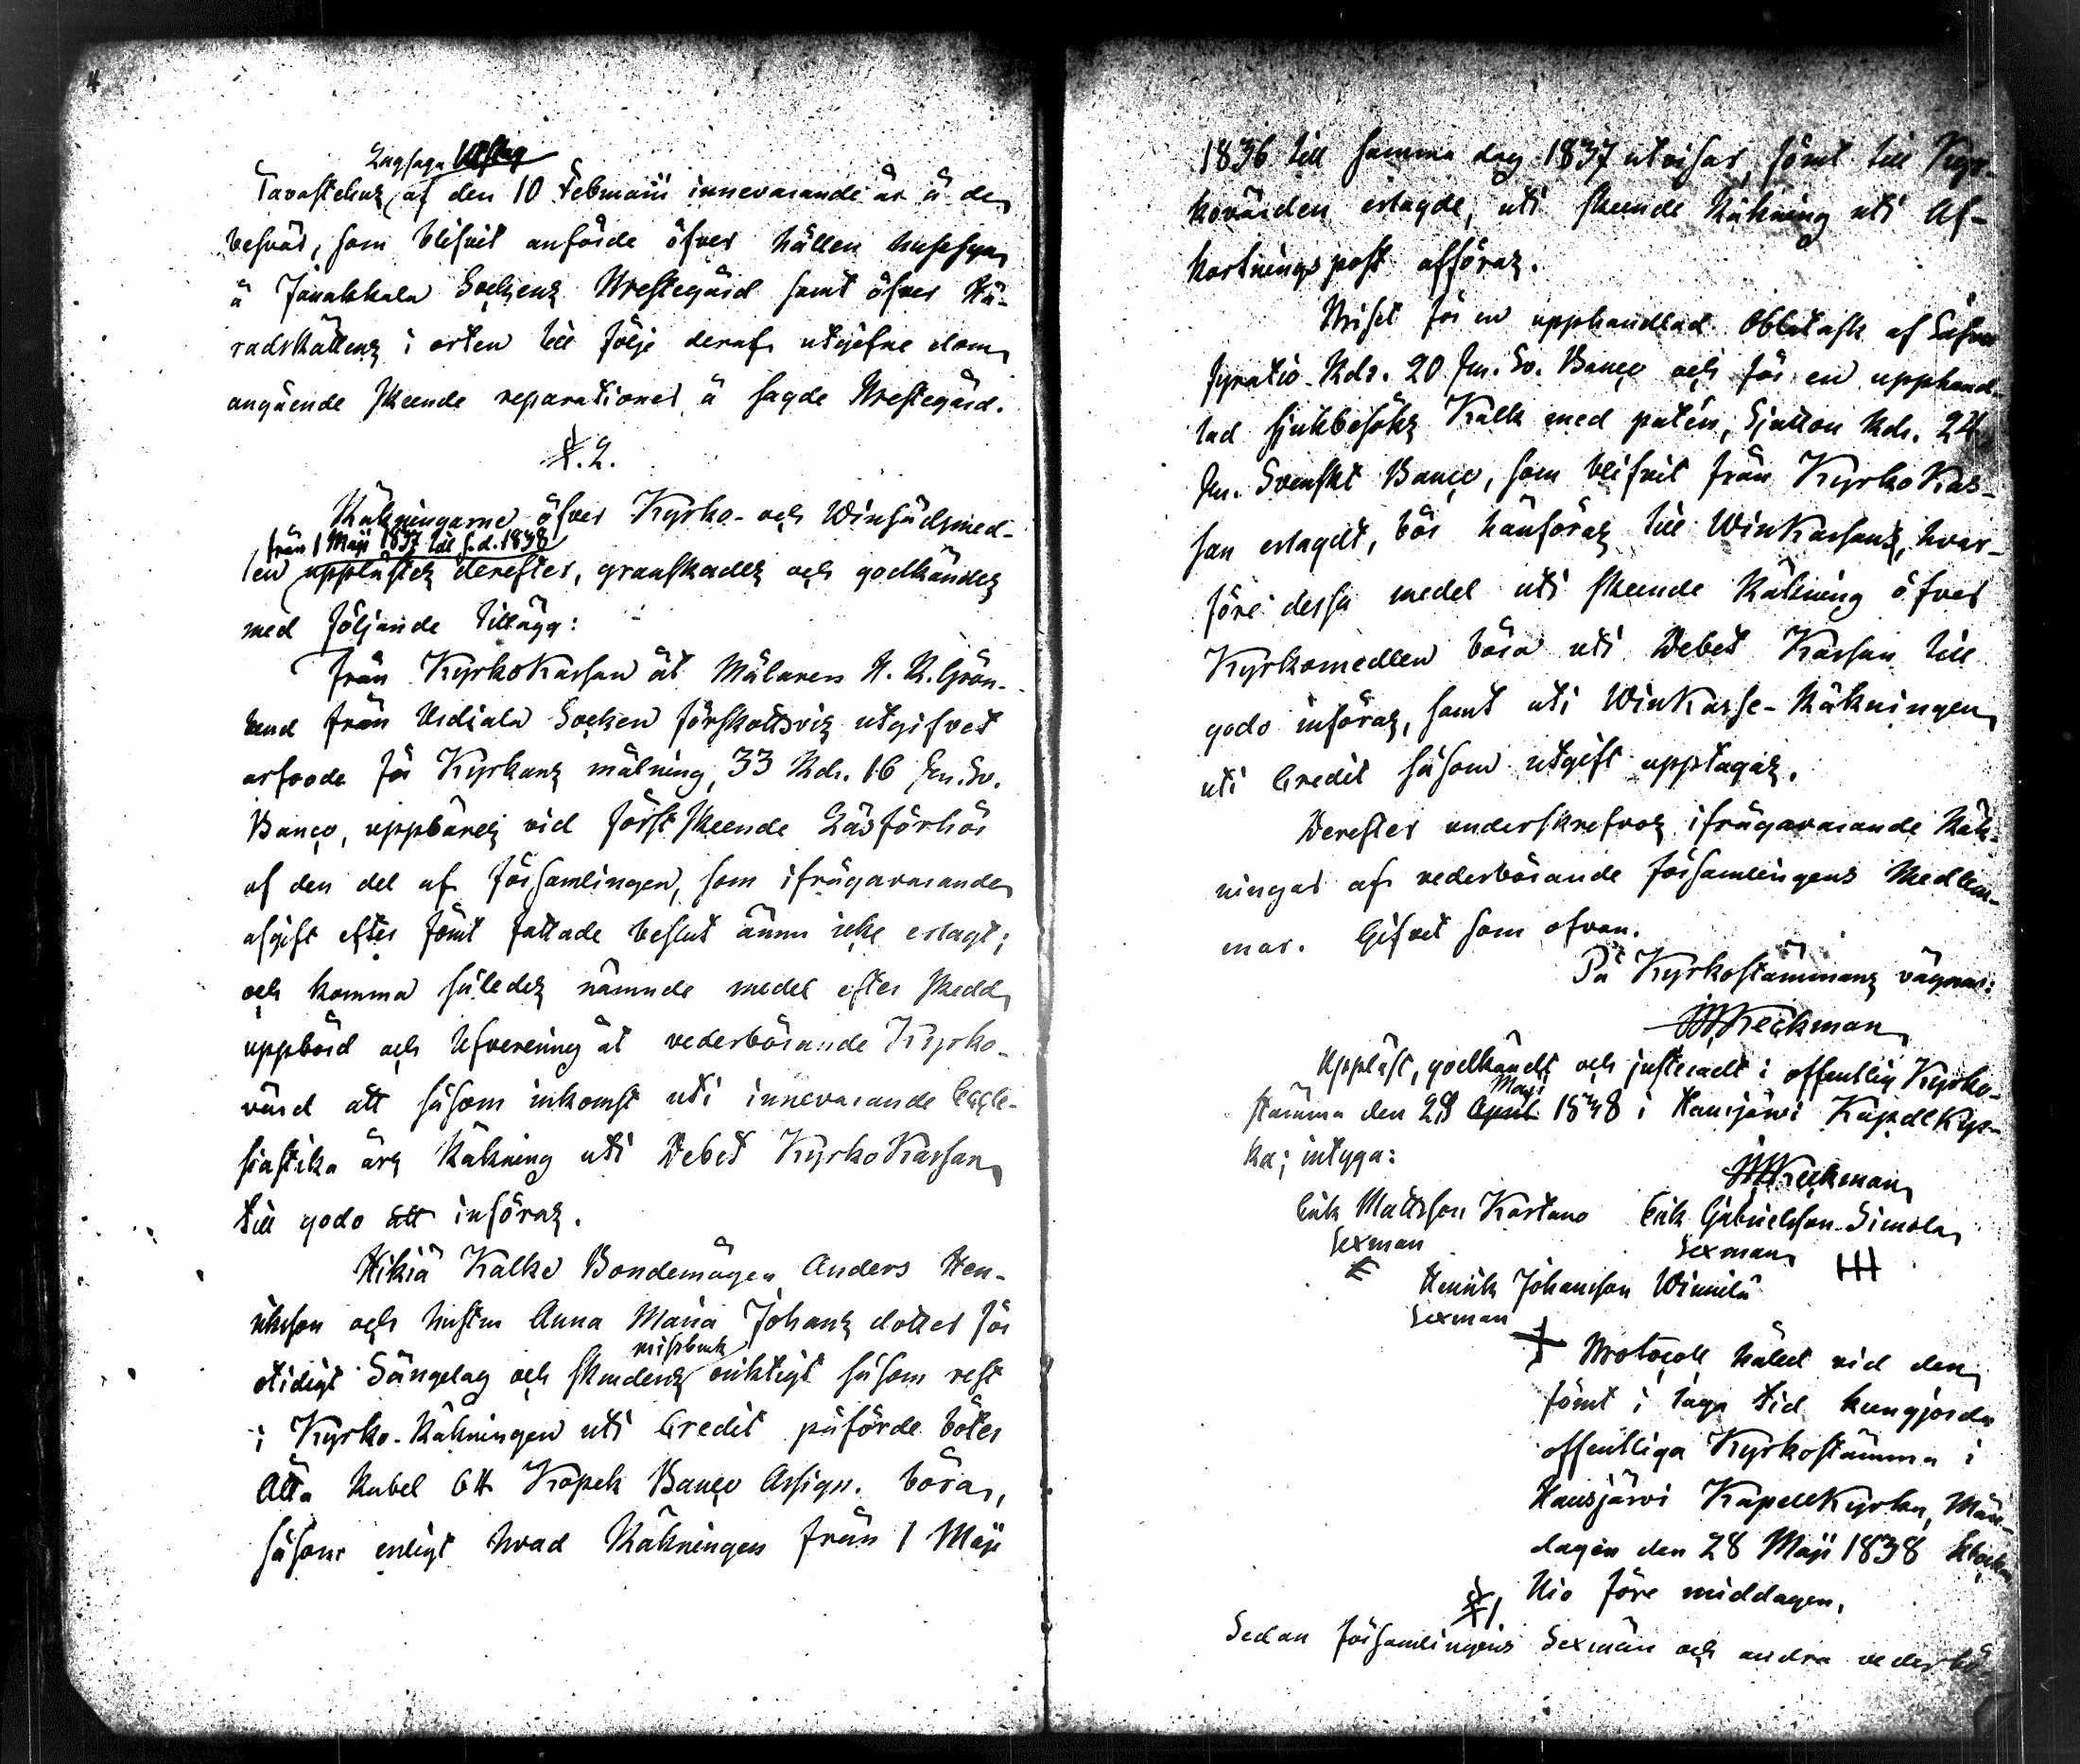 Lagsaga Utslag
Tavastehus af den 10 Februarii innevarande år å de
besvär, som blifvit anförde öfver hållen husesyn
å Janakkala Sockens Prestegård samt öfver Hä-
radsRättens i orten till följe deraf utgifne dom
angående skeende reparationer å sagde Prestegård.
§. 2.
Räkningarne öfver Kyrko- och Winsädsmed-
från 1 Maji 1837 till s.d. 1838
len upplästes derefter, granskades och godkändes
med följande tillägg:
från KyrkoKassan åt Målaren H. R. Grön-
lund från Urdiala Socken förskottsvis utgifvet
arfvode för Kyrkans målning, 33 Rdr. 16 sk. Sv.
Banco, uppbäres vid först skeende Läsförhör
af den del af församlingen, som ifrågavarande
afgift efter sömt fattade beslut ännu icke erlagt;
och komma således nämnde medel efter skedd
uppbörd och lefverering åt vederbörande Kyrko-
värd att såsom inkomst uti innevarande Eccle-
siastika års Räkning uti Debet KyrkoKassan
till godo att införas.
Hikiä Kalke Bondemågen Anders Hen-
riksson och hustru Anna Maria Johans dotter för
otidigt Sängelag och skuldens
missbruk
oriktigt såsom rest
i Kyrko-Räkningen uti Credit påförde böter
Åtta Rubel 64 Kopek Banco Assign. böra,
såsom enligt hvad Räkningen från 1 Maji
1836 till samma dag 1837 utvisar, sömt till Kyr-
kovärden erlagde, uti skeende Räkning uti Af-
kortningspost afföras.
Priset för en upphandlad Oblatask af Silfver
fyratio Rdr. 20 sk. Sv. Banco och för en upphand-
lad sjukbesöks Kalk med patén, Sjutton Rdr. 24
sk. Svenskt Banco, som blifvit från KyrkoKas-
san erlagdt, bör hänföras till WinKassans, hvar-
före dessa medel uti skeende Räkning öfver
Kyrkomedlen böra uti Debet Kassan till
godo införas, samt uti WinKasse-Räkningen
uti Credit såsom utgift upptagas.
Derefter underskrefvos ifrågavarande Räk-
ningar af vederbörande församlingens Medlem-
mar. Gifvet som ofvan.
På Kyrkostämmans vägnar:
Reckman
Uppläst, godkändt och justeradt i offentlig Kyrko-
stämma den 28 April Maji 1838 i Hausjärvi KapellKyr-
ka; intyga:
Reckman
Erik Mattsson Kartano Erik Gabrielsson Simola
Sexman Sexman
Henrik Johansson Winnilä
Sexman
Protocoll hållet vid den
sömt i laga tid kungjorda
offentliga Kyrkostämma i
Hausjärvi KapellKyrka, Mån-
dagen den 28 Maji 1838 Klockan
Nio före middagen.
§ 1.
Sedan församlingens Sexmän och andra vederbö-